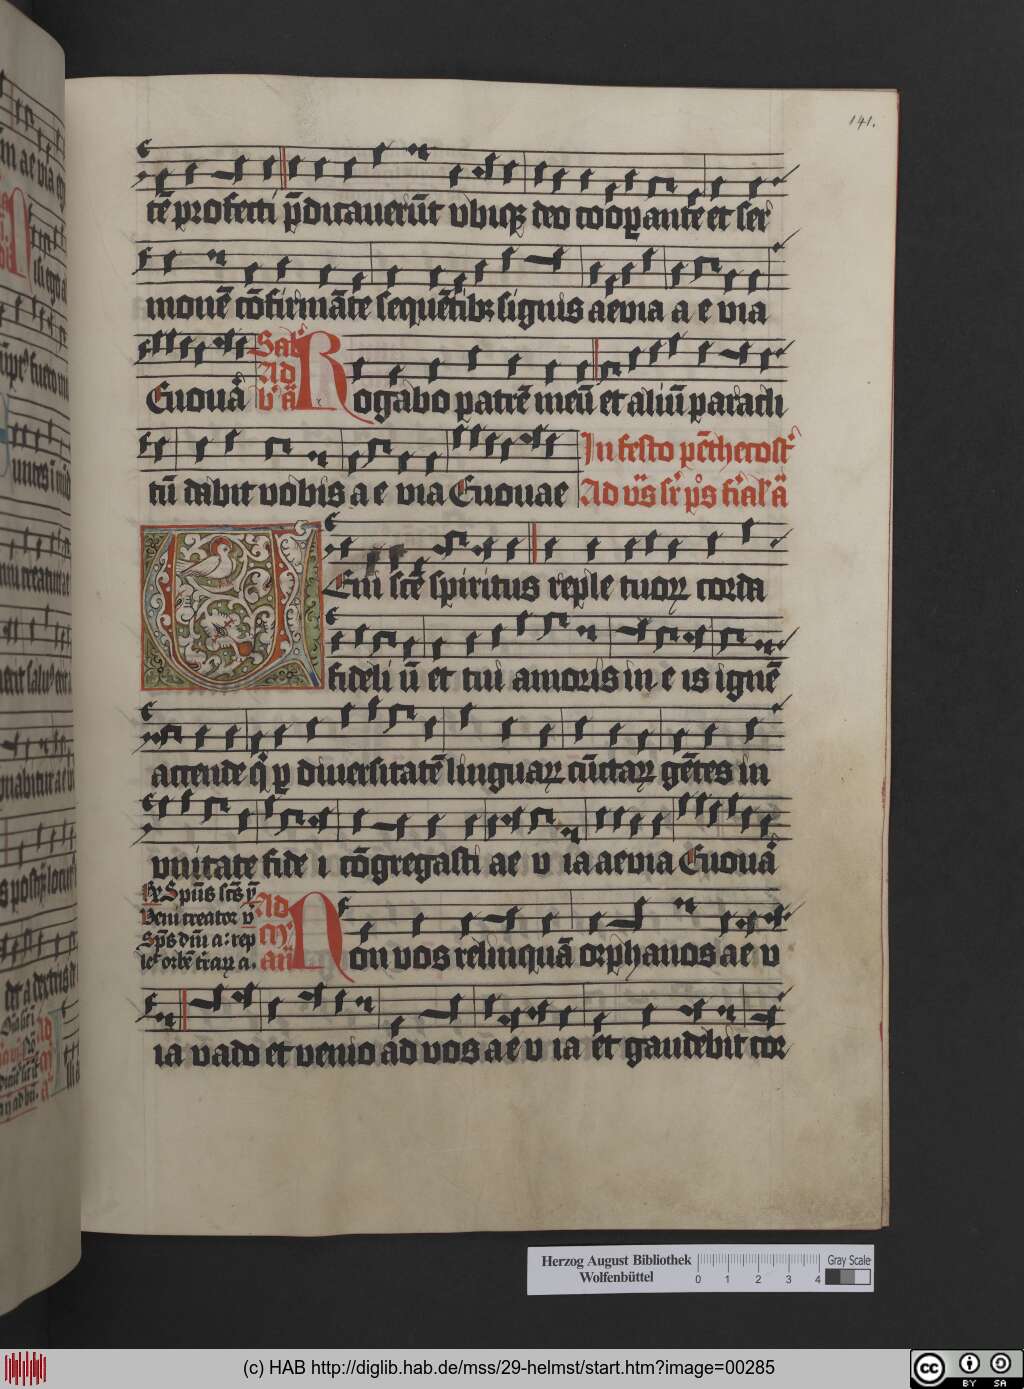 141.
tē profecti p̄dicauerūt vbiqȝ deo coop̲ante et ser
monē cōfirmāte sequētibȝ signis aeuia a e via
Sab͛
Ad
v̓ ā
Euouā
Rogabo patrē meū et aliū paracli
tū dabit vobis a e via Euouae
In festo pēthecost͛
Ad vs̄ sr̄ ps̄ f̓ial̓ ā
Veni scē spiritus reple tuoꝝ corda
fideli ū et tui amoris in e is ignē
accende q̓ ꝑ diuersitatē linguaꝝ cūctaꝝ gētes in
vnitate fide i cōgregasti ae v ia aeuia Euouā
ꝶ Spūs scūs ꝟ
Veni creator ꝟ
Sps̄ dn̄i a: rep
le orbē tr̄aꝝ a.
Ad
m̄
an̄
Non vos relinquā orphanos ae v
ia vado et venio ad vos a e v ia et gaudebit cor
Herzog August Bibliothek
Wolfenbüttel
0 1 2 3 4
Gray Scale
(c) HAB http://diglib.hab.de/mss/29-helmst/start.htm?image=00285
CC BY SA